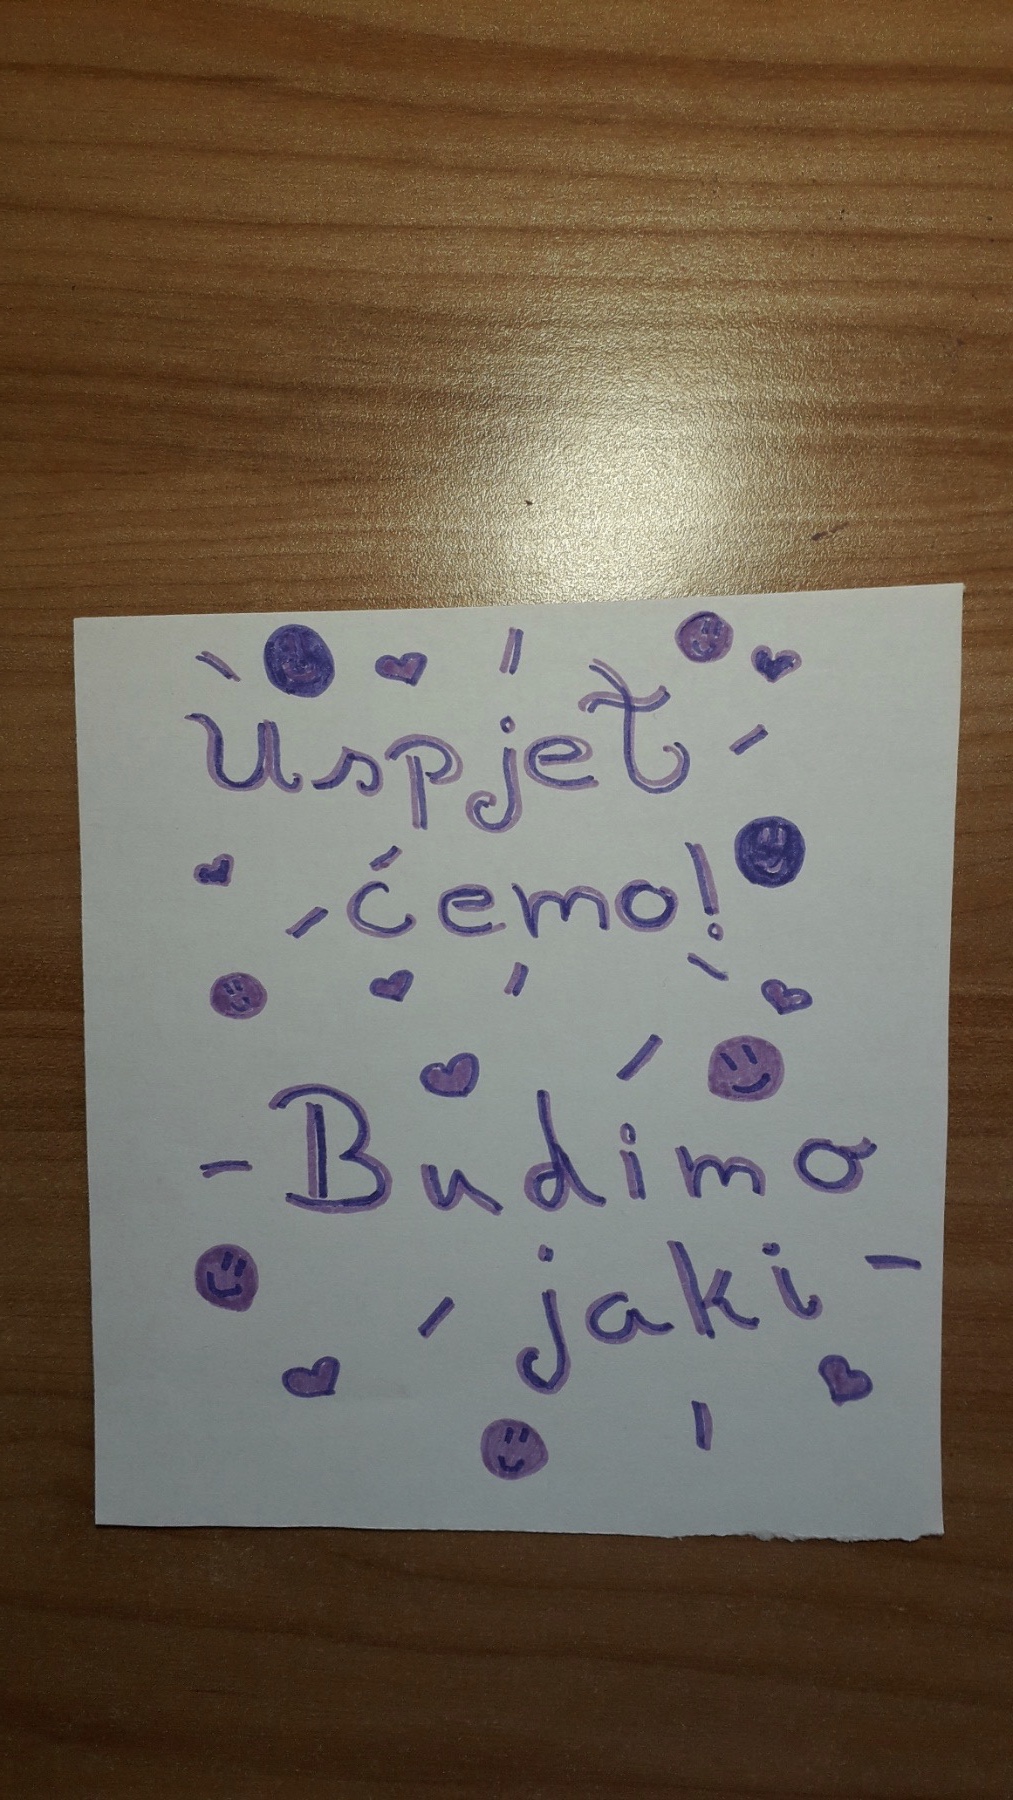 Uspjet
ćemo!
Budimo
jaki